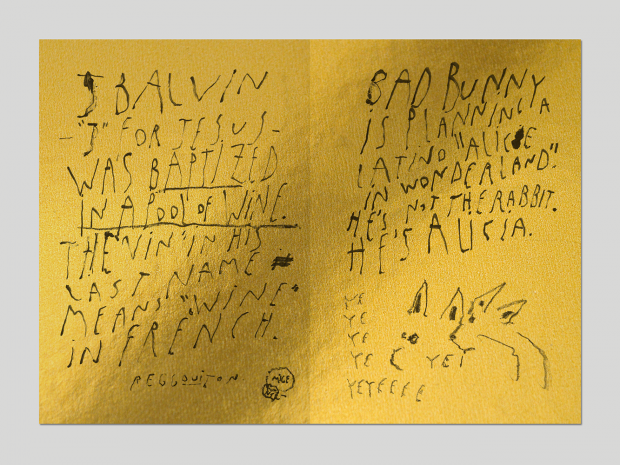 J BALVIN
— "J" FOR JESUS —
WAS BAPTIZED
IN A POOL OF WINE.
THE "VIN" IN HIS
LAST NAME
MEANS "WINE"
IN FRENCH.
REGGUITON
BAD BUNNY
IS PLANNING A
LATINO "ALICE
IN WONDERLAND".
HE'S NOT THE RABBIT.
HE'S ALICIA.
YE
YE
YE
YE YET
YEYEEEE